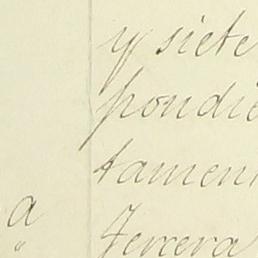 y siete
pondie
tamen
a
Tercera